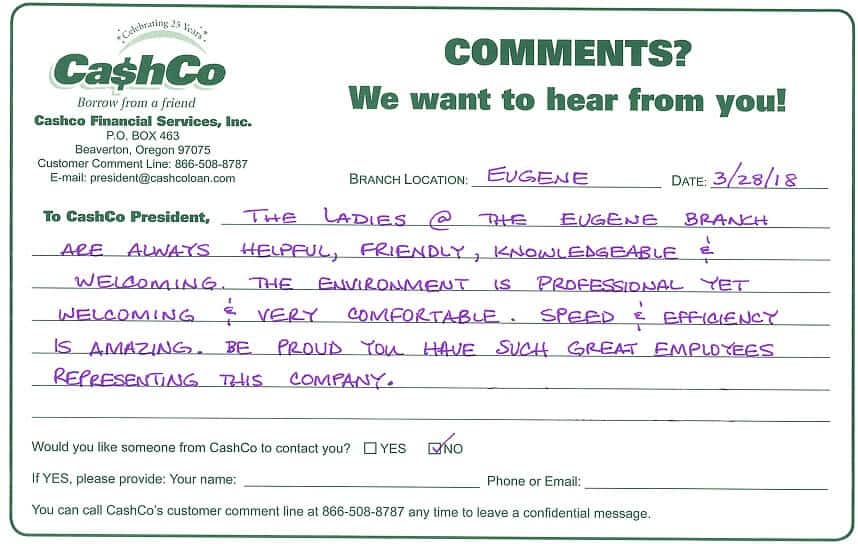 Celebrating 25 Years
Ca$hCo
Borrow from a friend
Cashco Financial Services, Inc.
P.O. BOX 463
Beaverton, Oregon 97075
Customer Comment Line: 866-508-8787
E-mail: president@cashcoloan.com
COMMENTS?
We want to hear from you!
BRANCH LOCATION: EUGENE DATE: 3/28/18
To CashCo President, THE LADIES @ THE EUGENE BRANCH
ARE ALWAYS HELPFUL, FRIENDLY, KNOWLEDGEABLE &
WELCOMING. THE ENVIRONMENT IS PROFESSIONAL YET
WELCOMING & VERY COMFORTABLE. SPEED & EFFICIENCY
IS AMAZING. BE PROUD YOU HAVE SUCH GREAT EMPLOYEES
REPRESENTING THIS COMPANY.
Would you like someone from CashCo to contact you? YES NO
If YES, please provide: Your name: Phone or Email:
You can call CashCo's customer comment line at 866-508-8787 any time to leave a confidential message.